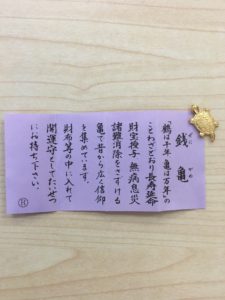 銭亀
ぜにがめ
「鶴は千年 亀は万年」の
ことわざどおり長寿延命
財宝授与 無病息災
諸難消除をさずける
亀で昔から広く信仰
を集めています。
財布等の中に入れて
開運守としてたいせつ
にお持ち下さい。